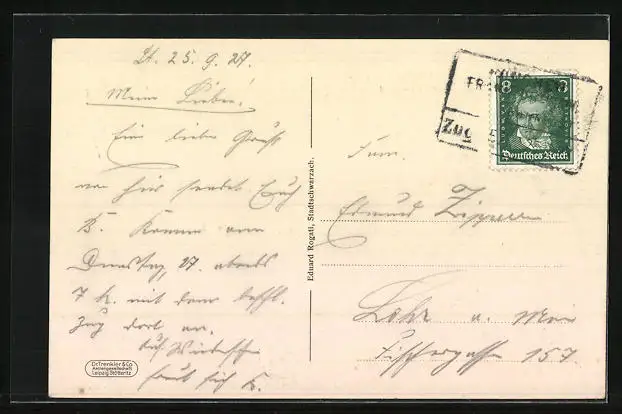 St. 25. 9. 27.
Meine Lieben!
Ein lieber Gruß
von hier sendet Euch
B. Komme am
Dienstag, 27. abends
7 h. mit dem
Zug dort an.
Auf Wiedersehen
Dr. Trenkler & Co.
Aktiengesellschaft
Leipzig-Stötteritz
Eduard Rogati, Stadtschwarzach.
Zug
8 8
Deutsches Reich
Fam.
Edmund
Lohr a. Main
Fischergasse 157.